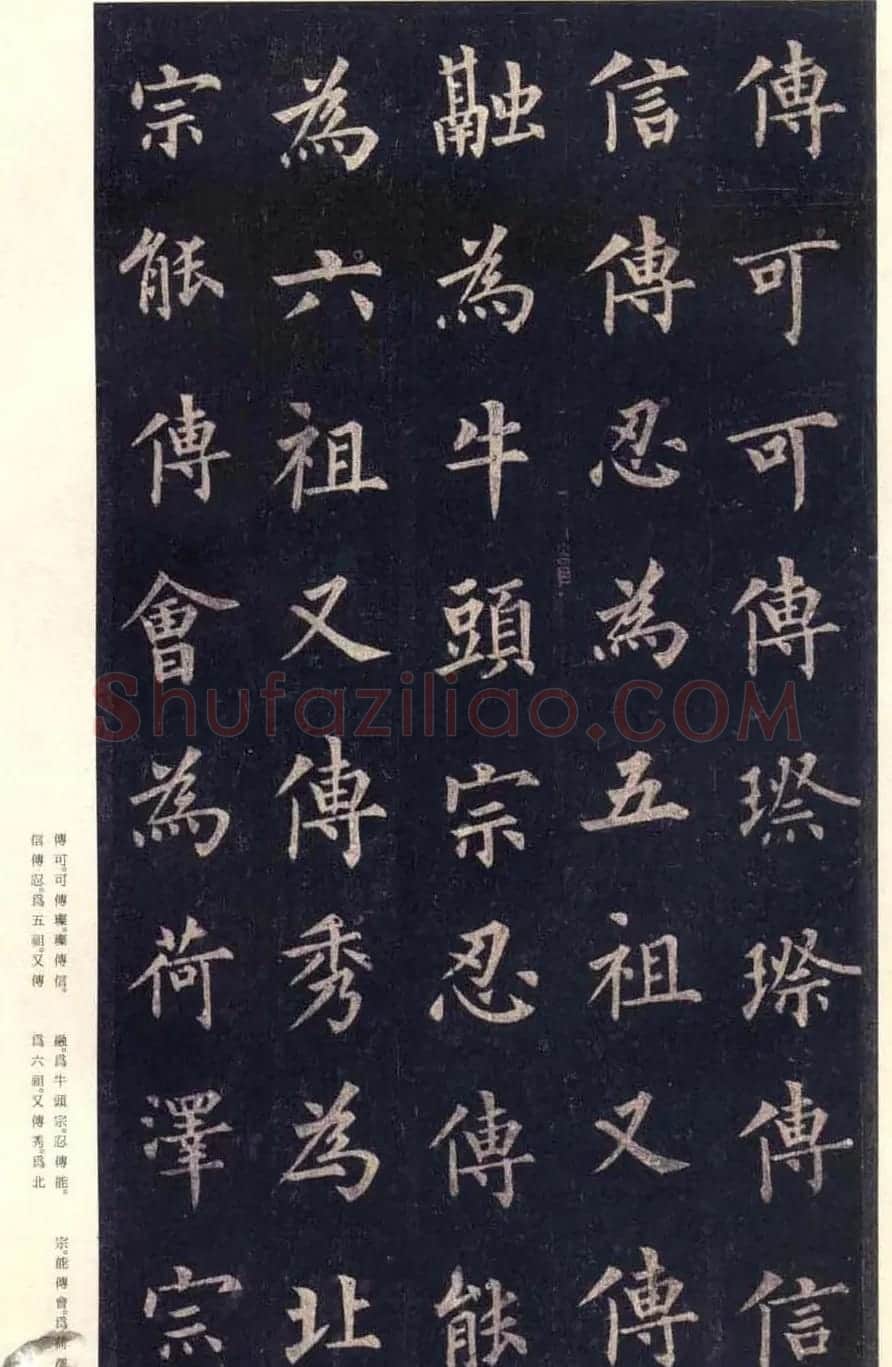 傳可可傳璨璨傳信
信傳忍為五祖又傳
融為牛頭宗忍傳能
為六祖又傳秀為北
宗能傳會為荷澤宗
傳可。可傳璨。璨傳信。
信傳忍。爲五祖。又傳
融。爲牛頭宗。忍傳能。
爲六祖。又傳秀。爲北
宗。能傳會。爲荷澤
Shufaziliao.COM